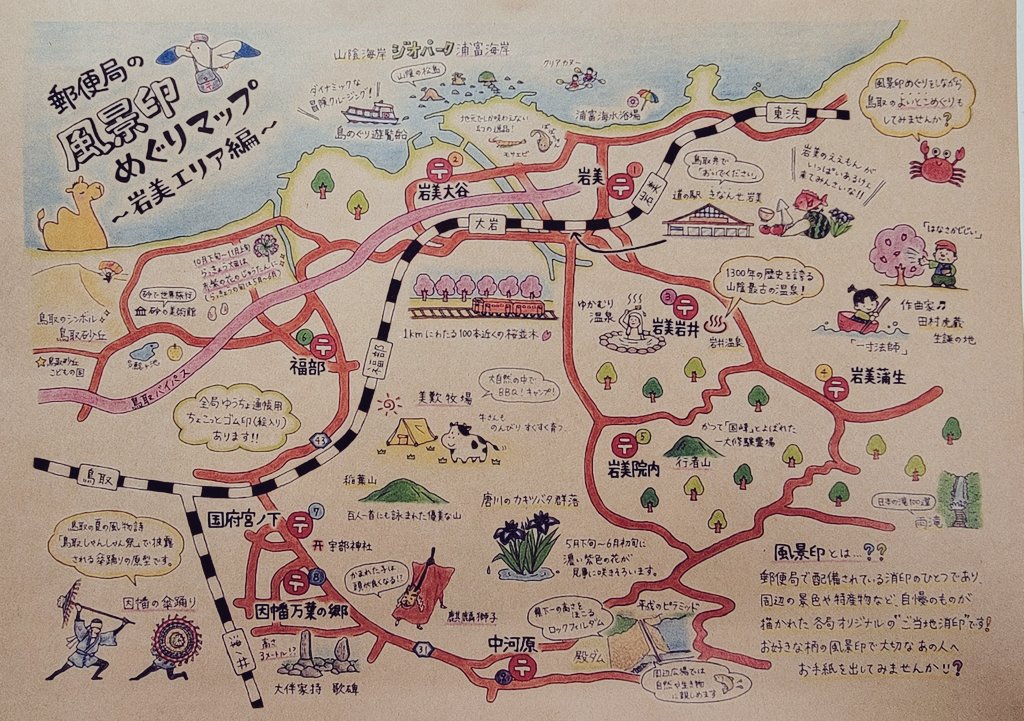 郵便局の
風景印
めぐりマップ
～岩美エリア編～
山陰海岸 ジオパーク 浦富海岸
山陰の松島
クリアカヌー
ダイナミックな
冒険クルージング!
島めぐり遊覧船
地元でしか味わえない
幻の逸品!
モサエビ
浦富海水浴場
東浜
風景印めぐりをしながら
鳥取のよいとこめぐりも
してみませんか?
② 岩美大谷
岩美 ①
岩美
大岩
鳥取弁で
「おいでください」
道の駅 きなんせ岩美
岩美のええもんが
いっぱいあるけぇ
来てみんさいな!!
「はなさかじじい」
作曲家♫
田村虎蔵
生誕の地
「一寸法師」
10月下旬～11月上旬
らっきょう畑は
赤紫の花のじゅうたんに
(らっきょうの旬は5月～6月)
砂で世界旅行
砂の美術館
鳥取のシンボル
鳥取砂丘
☆鳥取砂丘
こどもの国
多鯰ヶ池
鳥取バイパス
⑥
福部
福部
1kmにわたる100本近くの桜並木
ゆかむり
温泉
③
岩美岩井
岩井温泉
1300年の歴史を誇る
山陰最古の温泉!
④
岩美蒲生
全局ゆうちょ通帳用
ちょこっとゴム印(絵入り)
あります!!
43
美歎牧場
大自然の中で
BBQ!キャンプ!
牛さんも
のんびり すくすく育つ…
かつて「国峰」とよばれた
一大修験霊場
⑤
岩美院内
行者山
鳥取
稲葉山
百人一首にも詠まれた優美な山
唐川のカキツバタ群落
5月下旬～6月初旬に
濃い紫色の花が
見事に咲きそろいます。
日本の滝100選
雨滝
国府宮ノ下 ⑦
宇部神社
鳥取の夏の風物詩
「鳥取しゃんしゃん祭」で披露
される傘踊りの原型です。
因幡の傘踊り
⑧
因幡万葉の郷
かまれた子は
頭が良くなる!?
麒麟獅子
高さ
3メートル!?
大伴家持 歌碑
津ノ井
31
中河原
⑨
県下一の高さをほこる
ロックフィルダム
殿ダム
平成のピラミッド
周辺広場では
自然や生き物
に親しめます
風景印とは…??
郵便局で配備されている消印のひとつであり、
周辺の景色や特産物など、自慢のものが
描かれた各局オリジナルの"ご当地消印"です!
お好きな柄の風景印で大切なあの人へ
お手紙を出してみませんか!!?